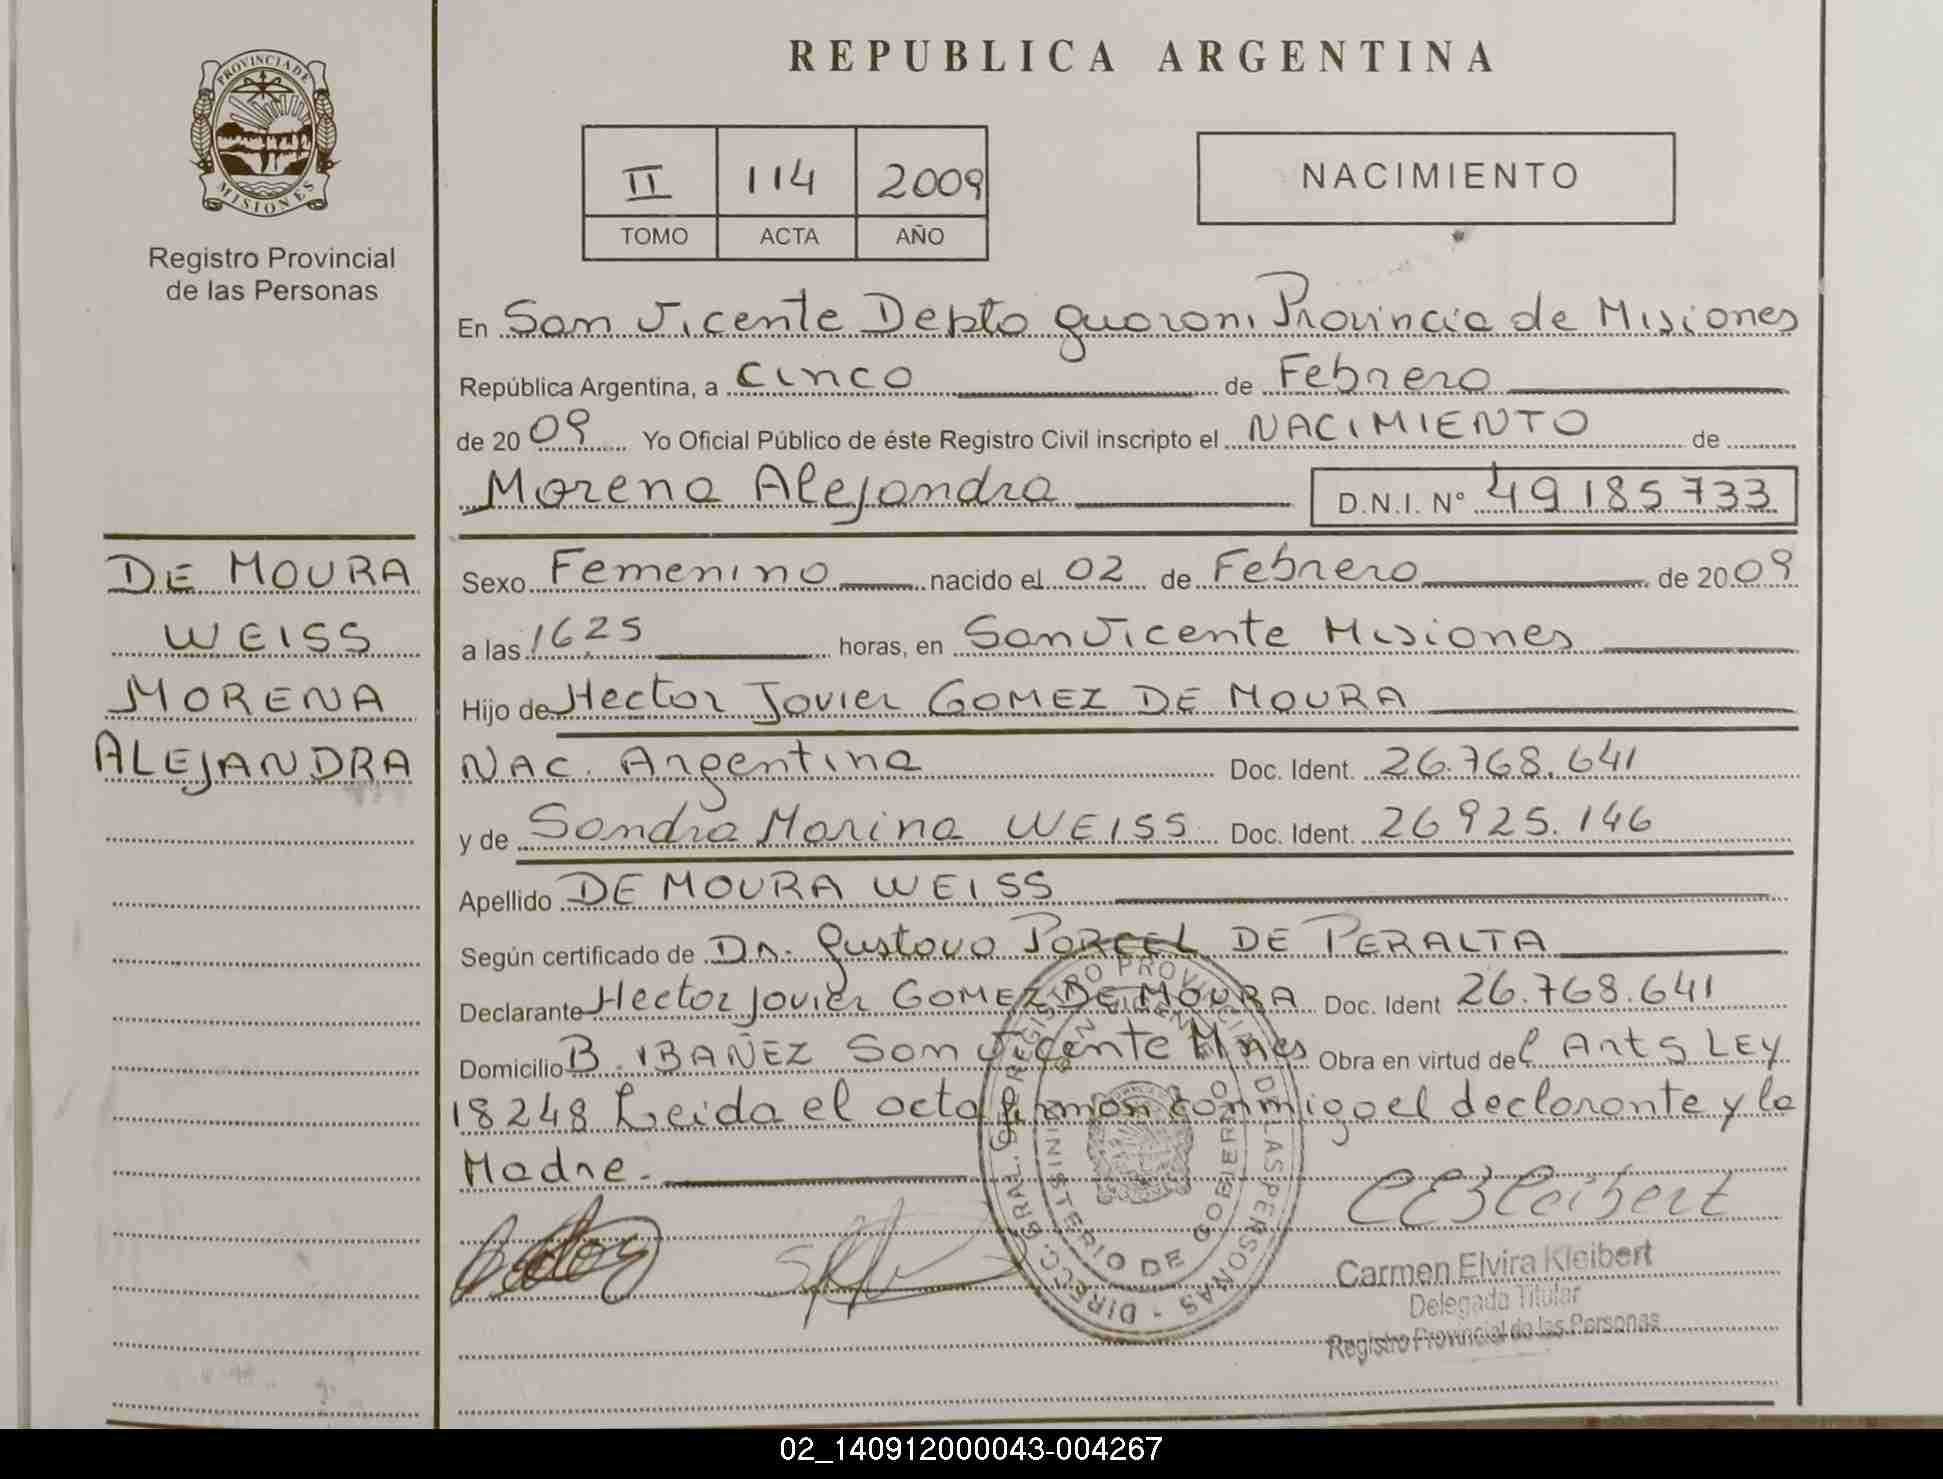 REPUBLICA ARGENTINA
PROVINCIA DE MISIONES
Registro Provincial
de las Personas
II 114 2009
TOMO ACTA AÑO
NACIMIENTO
En San Vicente Depto Guarani Provincia de Misiones
República Argentina, a cinco de Febrero
de 2009 Yo Oficial Público de éste Registro Civil inscripto el NACIMIENTO de
Morena Alejandra D.N.I. Nº 49185733
DE MOURA
WEISS
MORENA
ALEJANDRA
Sexo Femenino nacido el 02 de Febrero de 2009
a las 16.25 horas, en San Vicente Misiones
Hijo de Hector Javier GOMEZ DE MOURA
Nac. Argentina Doc. Ident. 26.768.641
y de Sandra Marina WEISS Doc. Ident. 26925.146
Apellido DE MOURA WEISS
Según certificado de Dr. Gustavo PORCEL DE PERALTA
Declarante Hector Javier GOMEZ DE MOURA Doc. Ident 26.768.641
Domicilio B. IBAÑEZ San Vicente Mnes Obra en virtud del Art 5 LEY
18248 Leida el acta firman conmigo el declarante y la
Madre.
DIRECC. GRAL. REGISTRO PROVINCIAL DE LAS PERSONAS
MINISTERIO DE GOBIERNO
SAN VICENTE
CEKleibert
Carmen Elvira Kleibert
Delegada Titular
Registro Provincial de las Personas
02_140912000043-004267